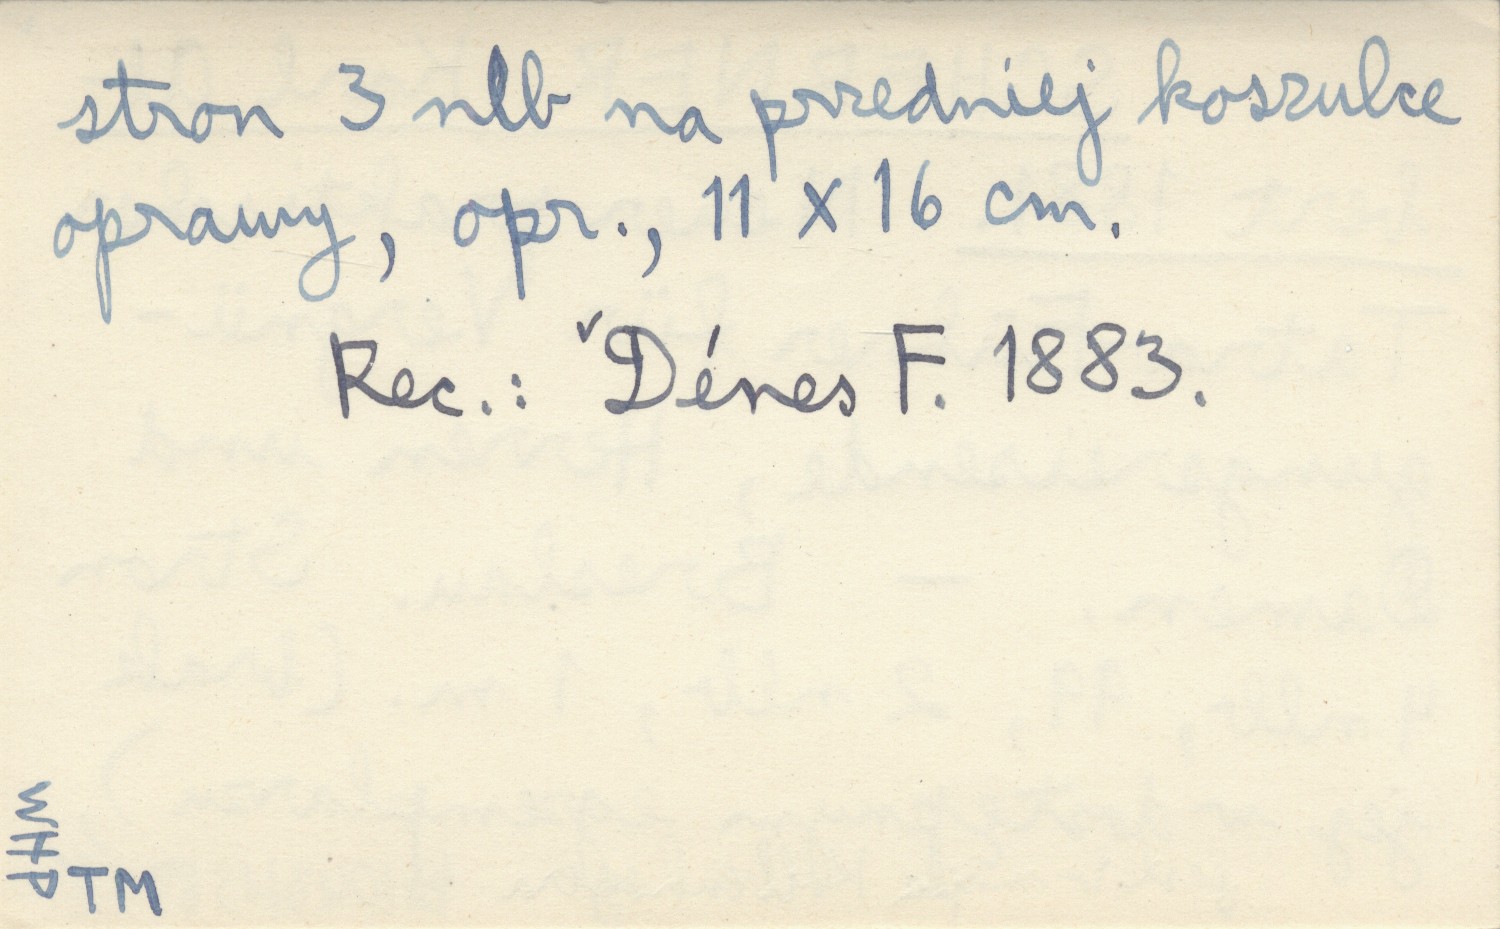 stron 3 nlb na przedniej koszulce
oprawy, opr., 11 x 16 cm.
Rec.: ᵛDénes F. 1883.
WHP
TM